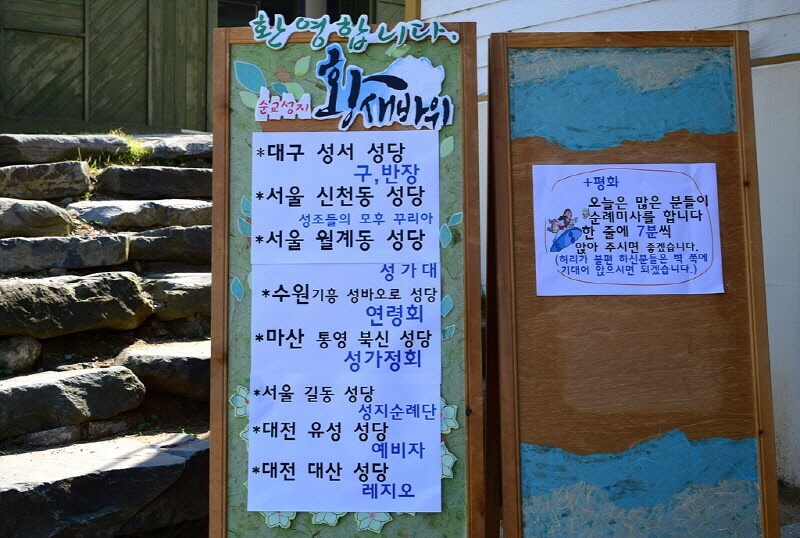 환영합니다.
순교성지 황새바위
*대구 성서 성당
구,반장
*서울 신천동 성당
성조들의 모후 꾸리아
*서울 월계동 성당
성가대
*수원 기흥 성바오로 성당
연령회
*마산 통영 북신 성당
성가정회
*서울 길동 성당
성지순례단
*대전 유성 성당
예비자
*대전 대산 성당
레지오
+평화
오늘은 많은 분들이
순례미사를 합니다
한 줄에 7분씩
앉아 주시면 좋겠습니다.
(허리가 불편 하신분들은 벽 쪽에
기대어 앉으시면 되겠습니다.)